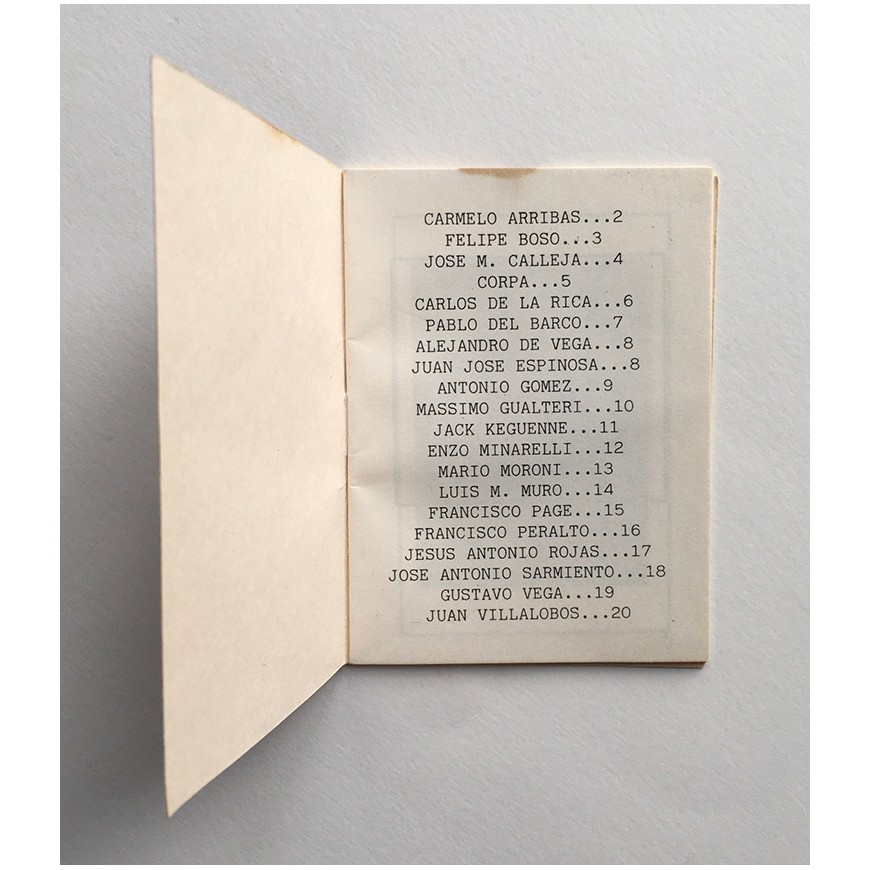 CARMELO ARRIBAS...2
FELIPE BOSO...3
JOSE M. CALLEJA...4
CORPA...5
CARLOS DE LA RICA...6
PABLO DEL BARCO...7
ALEJANDRO DE VEGA...8
JUAN JOSE ESPINOSA...8
ANTONIO GOMEZ...9
MASSIMO GUALTERI...10
JACK KEGUENNE...11
ENZO MINARELLI...12
MARIO MORONI...13
LUIS M. MURO...14
FRANCISCO PAGE...15
FRANCISCO PERALTO...16
JESUS ANTONIO ROJAS...17
JOSE ANTONIO SARMIENTO...18
GUSTAVO VEGA...19
JUAN VILLALOBOS...20